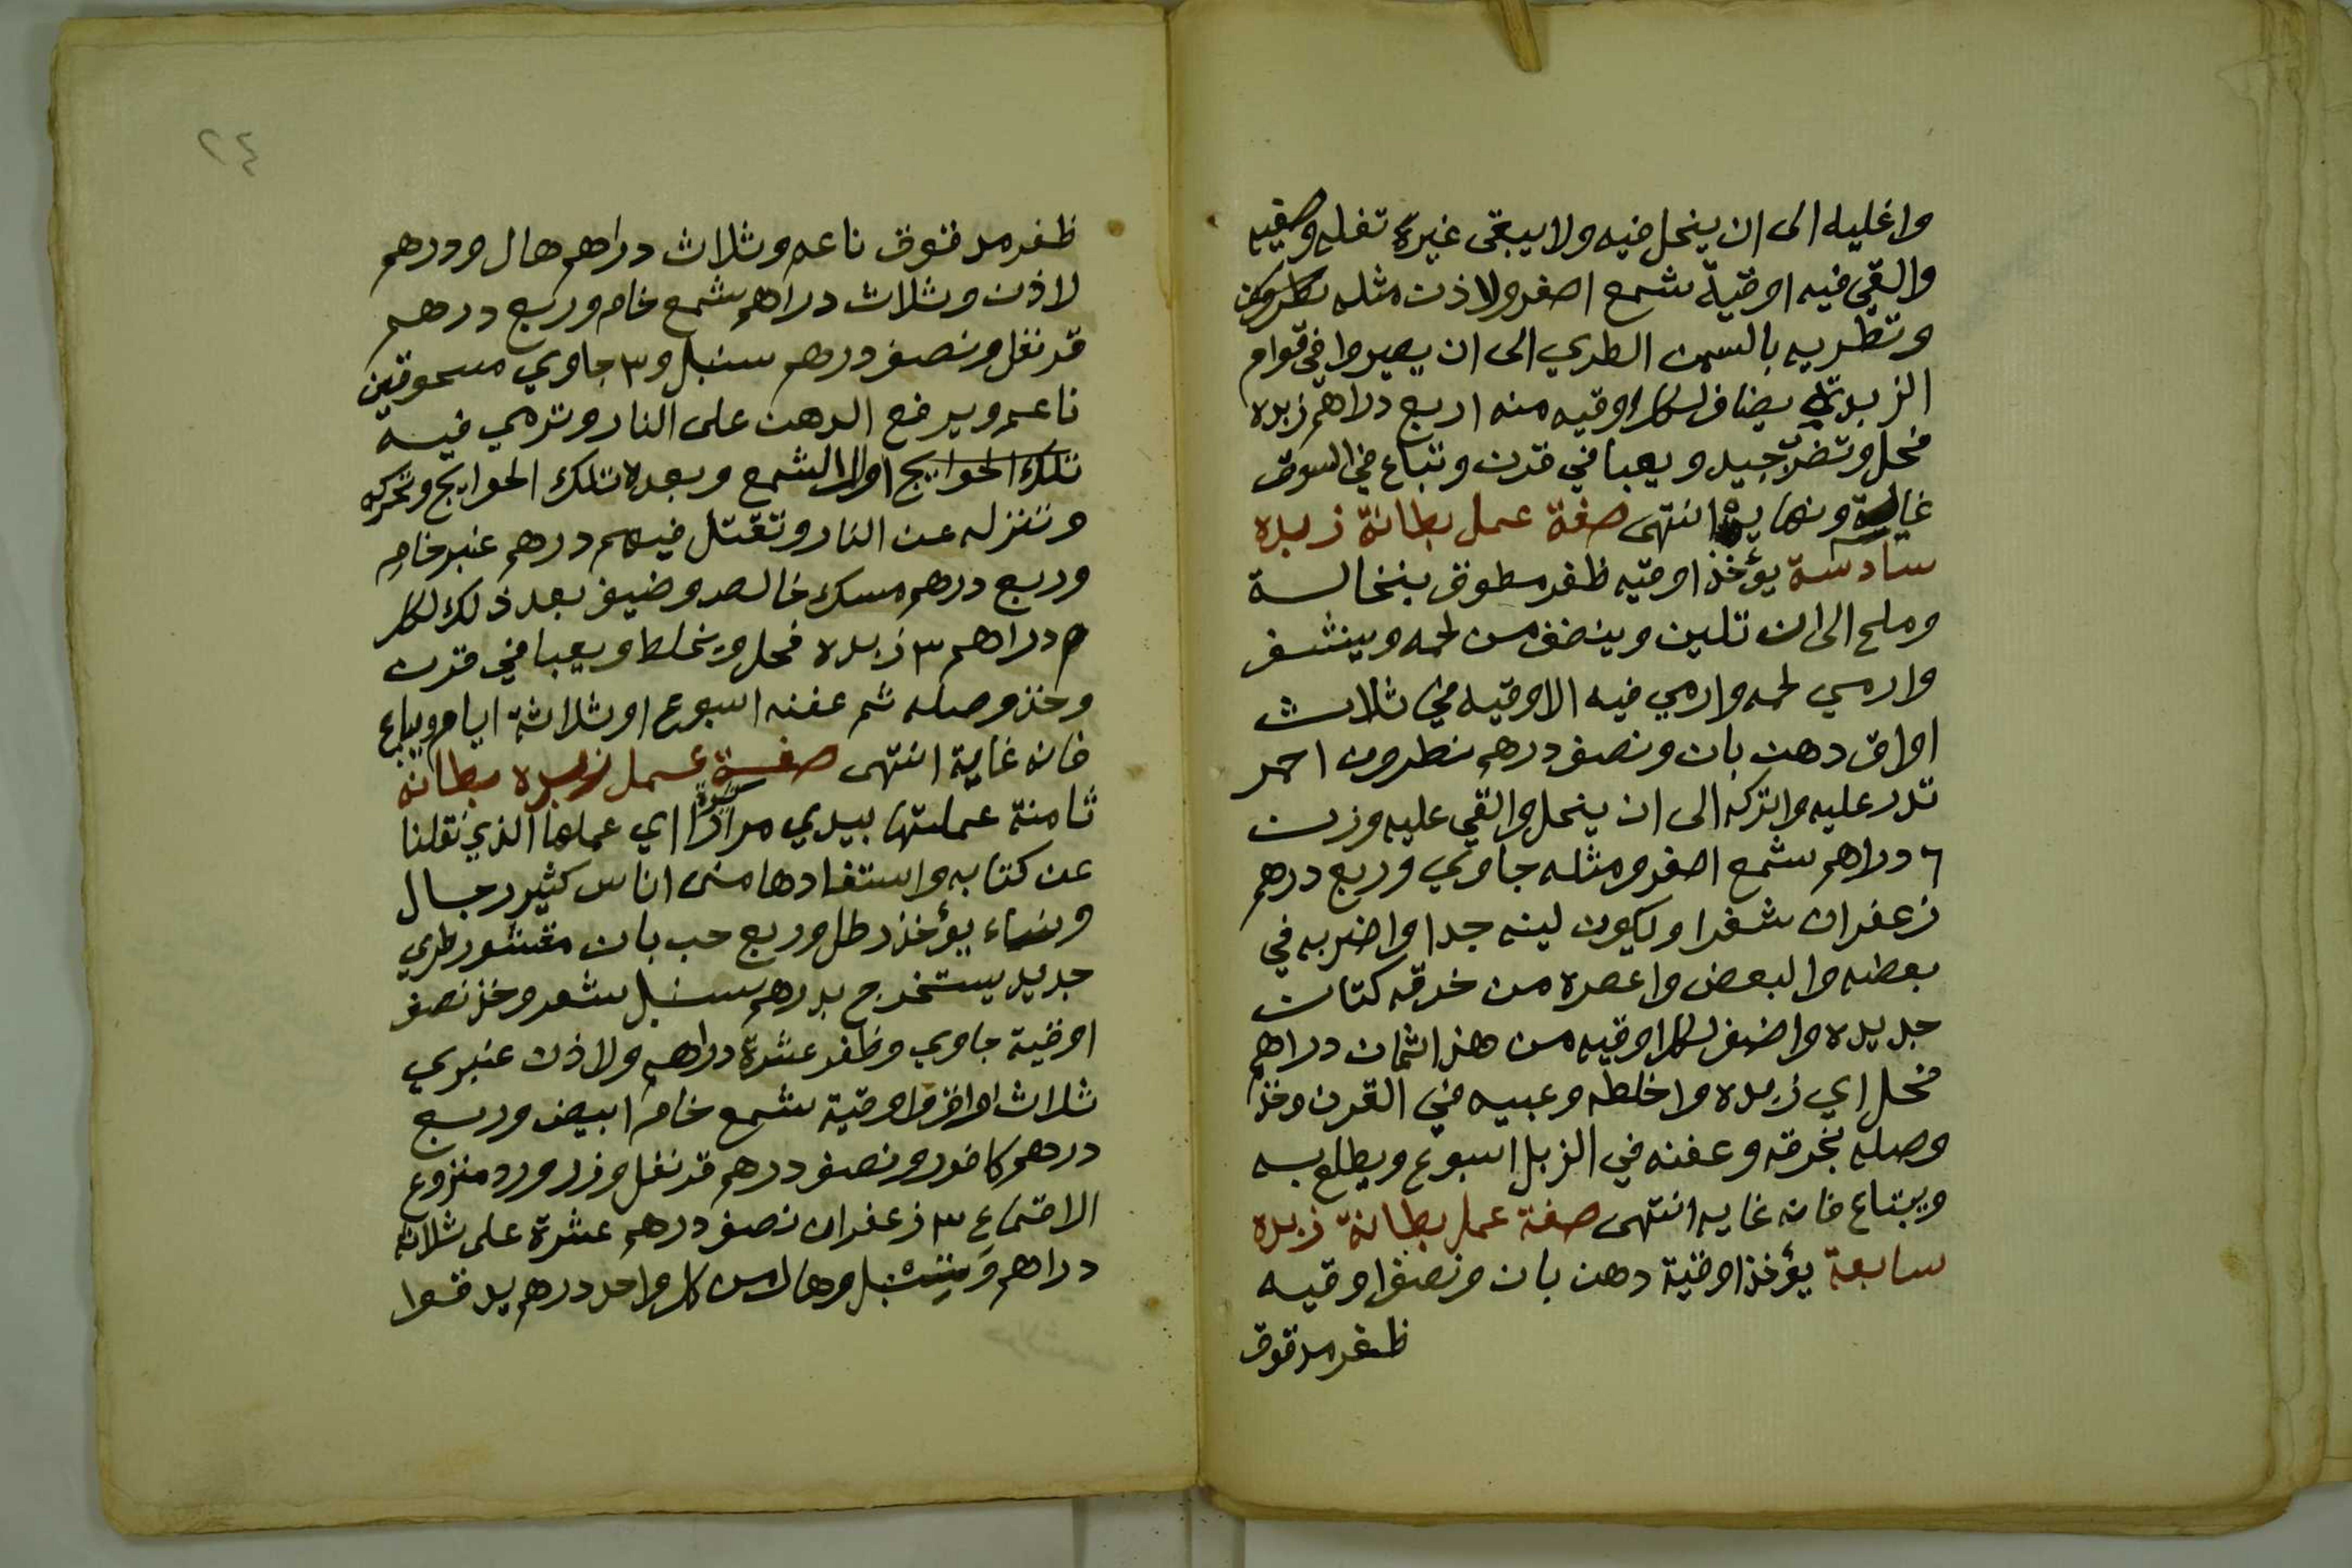 واغليه الى ان ينحل فيه ولا يبقى غيرة تفله وصفيه
والقي فيه اوقية شمع اصفر ولاذن مثله
وتطريه بالسمن الطري الى ان يصيروا في قوام
الزبدة يضاف لكل اوقيه منه اربع دراهم زبده
فحل وتضرب جيد ويعبا في قرن وتباع في السوق
غاية ونهايه انتهى صفة عمل بطانة زبده
سادسة يؤخذ اوقيه ظفر مطوق بنخالة
وملح الى ان تلين وينضف من لحمه وينشف
وارمي لحمه وارمي فيه الاوقيه في ثلاث
اواق دهن بان ونصف درهم نطرون احمر
تدر عليه واتركه الى ان ينحل والقي عليه وزن
٦ دراهم شمع اصفر ومثله جاوي وربع درهم
زعفران شفرا وليكون لينه جدا واضربه في
بعضه والبعض واعصره من خرقه كتان
جديده واضف لكل اوقيه من هذا ثمان دراهم
فحل اي زبده واخلطه وعبيه في القرن وخذ
وصله بخرقه وعفنه في الزبل اسبوع ويطلع به
ويبتاع فانه غايه انتهى صفة عمل بطانة زبده
سابعة يؤخذ اوقية دهن بان ونصف اوقيه
ظفر مدقوق
٢٤
ظفر مدقوق ناعم وثلاث دراهم هال ودرهم
لاذن وثلاث دراهم شمع خام وربع درهم
قرنفل ونصف درهم سنبل و٣ جاوي مسحوقين
ناعم ويرفع الدهن على النار وترمي فيه
تلك الحوايج اولا الشمع وبعده تلك الحوايج وتحركه
وتنزله عن النار وتقتل فيهم درهم عنبر خام
وربع درهم مسك خالص وضيف بعد ذلك لكل
دراهم ٣ زبده فحل ويخلط ويعبا في قرن
وخذ وصله ثم عفنه اسبوع او ثلاثة ايام ويباع
فانه غاية انتهى صفة عمل زبده بطانة
ثامنة عملتها بيدي مرارا اي عملها الذي نقلنا
عن كتابه واستفادها منى اناس كثير رجال
ونساء يؤخذ رطل وربع حب بان مقشور طري
جديد يستخرج بدرهم سنبل شعر وخذ نصف
اوقية جاوي وظفر عشرة دراهم ولاذن عنبري
ثلاث اواق واوقية شمع خام ابيض وربع
درهم كافور ونصف درهم قرنفل وزر ورد منزوع
الاقماع ٣ زعفران نصف درهم عشرة على ثلاثه
دراهم وسنبل وهال من كل واحد درهم يدقوا